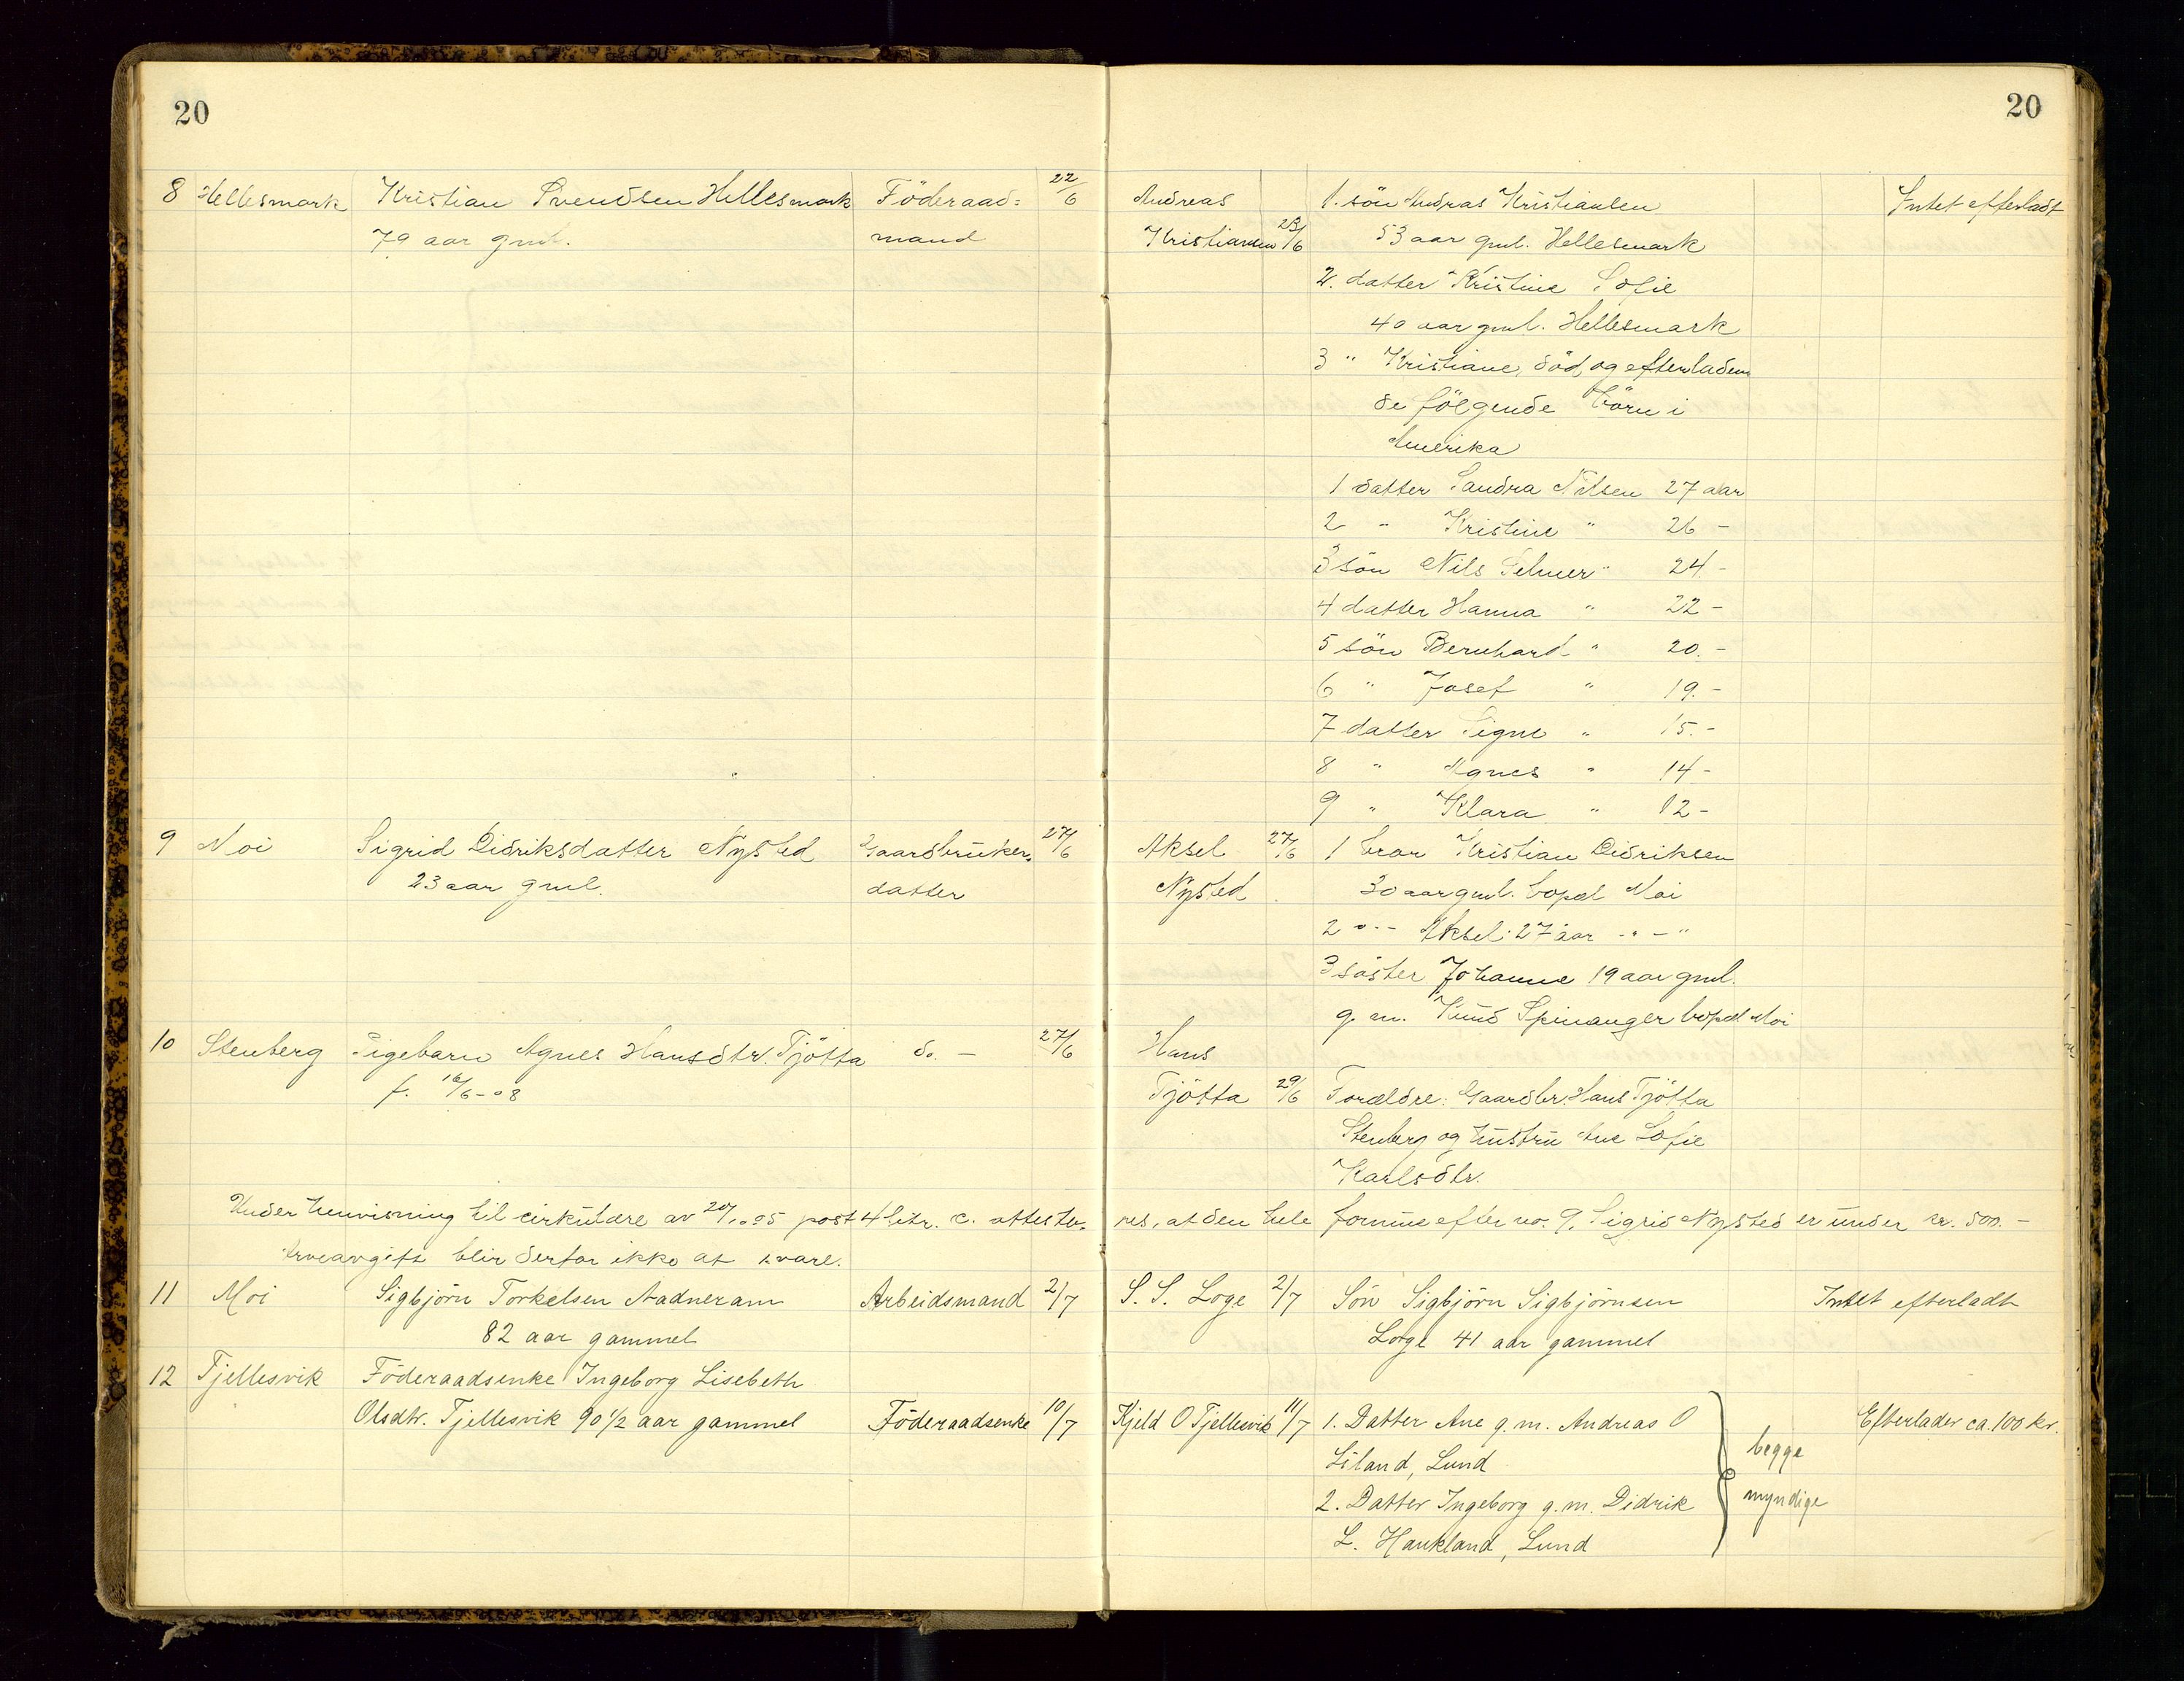 20
20
8 Hellesmark Kristian Svendsen Hellesmark Föderaad= 22/6 Andreas 1. sön Andras Kristiansen Intet efterladt
79 aar gml. mand Kristiansen 23/6 53 aar gml. Hellesmark
2. datter Kristine Sofie
40 aar gml. Hellesmark
3 " Kristiane, död, og efterladen
de fölgende börn i
Amerika
1 datter Sandra Nilsen 27 aar
2 " Kristine " 26 -
3 sön Nils Selmer " 24 -
4 datter Hanna " 22 -
5 sön Bernhard " 20. -
6 " Josef " 19. -
7 datter Signe " 15. -
8 " Agnes " 14 -
9 " Klara " 12 -
9 Moi Sigrid Didriksdatter Nysted Gaardbruker 27/6 Aksel 27/6 1 bror Kristian Didriksen
23 aar gml. datter Nysted 30 aar gml. bopæl Moi
2 " - Aksel 27 aar - " - "
3 söster Johanne 19 aar gml.
g. m. Knud Spinanger bopæl Moi
10 Stenberg Pigebarn Agnes Hansdtr. Tjötta do. - 27/6 Hans
f. 16/6-08 Tjötta 29/6 Forældre: Gaardbr. Hans Tjötta
Stenberg og hustru Ane Sofie
Karlsdtr.
Under henvisning til cirkulære av 20/10 05 post 4 litr. c. atteste- res, at den hele formue efter no. 9, Sigrid Nysted er under kr. 500. -
Arveavgift blir derfor ikke at svare.
11 Moi Sigbjörn Torkelsen Aadneram Arbeidsmand 2/7 S. S. Loge 2/7 Sön Sigbjörn Sigbjörnsen Intet efterladt
82 aar gammel Loge 41 aar gammel
12 Tjellesvik Föderaadsenke Ingeborg Lisebeth
Olsdtr. Tjellesvik 90 1/2 aar gammel Föderaadsenke 10/7 Kjeld O Tjellesvik 11/7 1. Datter Ane g. m. Andreas O Efterlader ca. 100 kr.
Liland, Lund begge
2. Datter Ingeborg g. m. Didrik myndige
L. Haukland, Lund